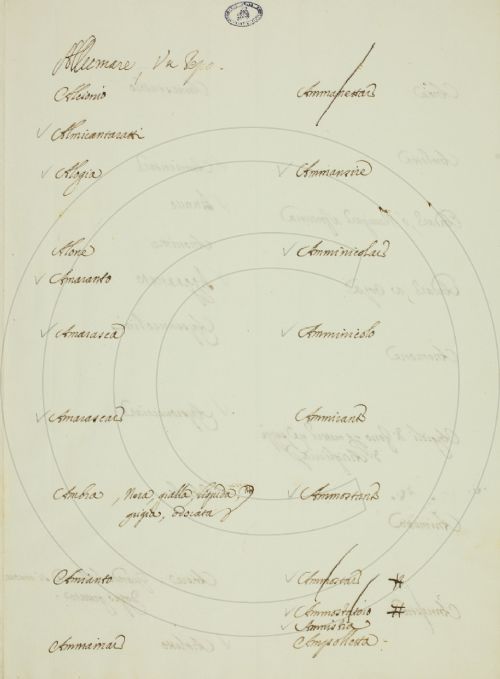 Allumare, Va dopo.
Alcionio
Almicantaratti
Alogia
Alone
Amaranto
Amarasca
Amarascare
Ambra, Nera, gialla, liquida,
grigia, odorata
Amianto
Ammainare
Ammansire
Amminicolare
Amminicolo
Ammirante
Ammostante
Ammostare
Ammostatoio
Amnistia
Ampolletta